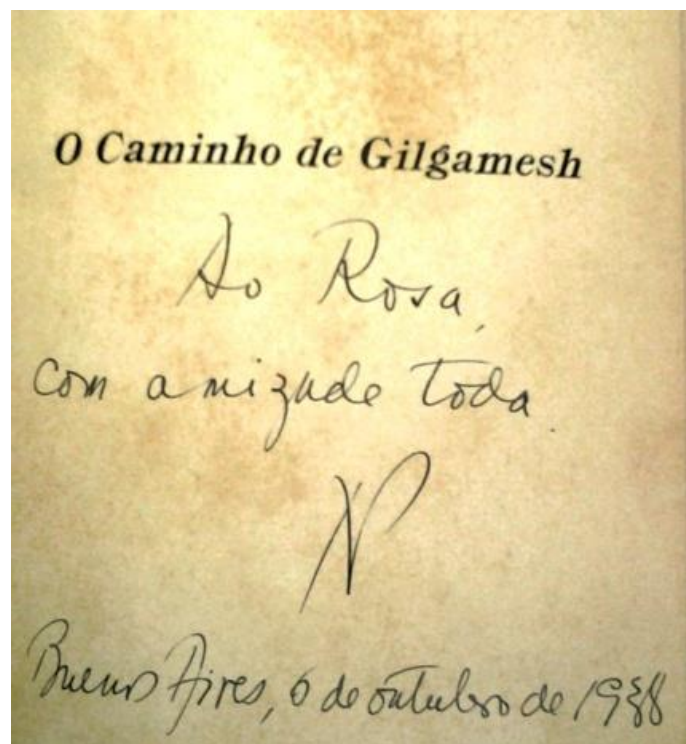 O Caminho de Gilgamesh
Ao Rosa,
com amizade toda.
Buenos Aires, 6 de outubro de 1988